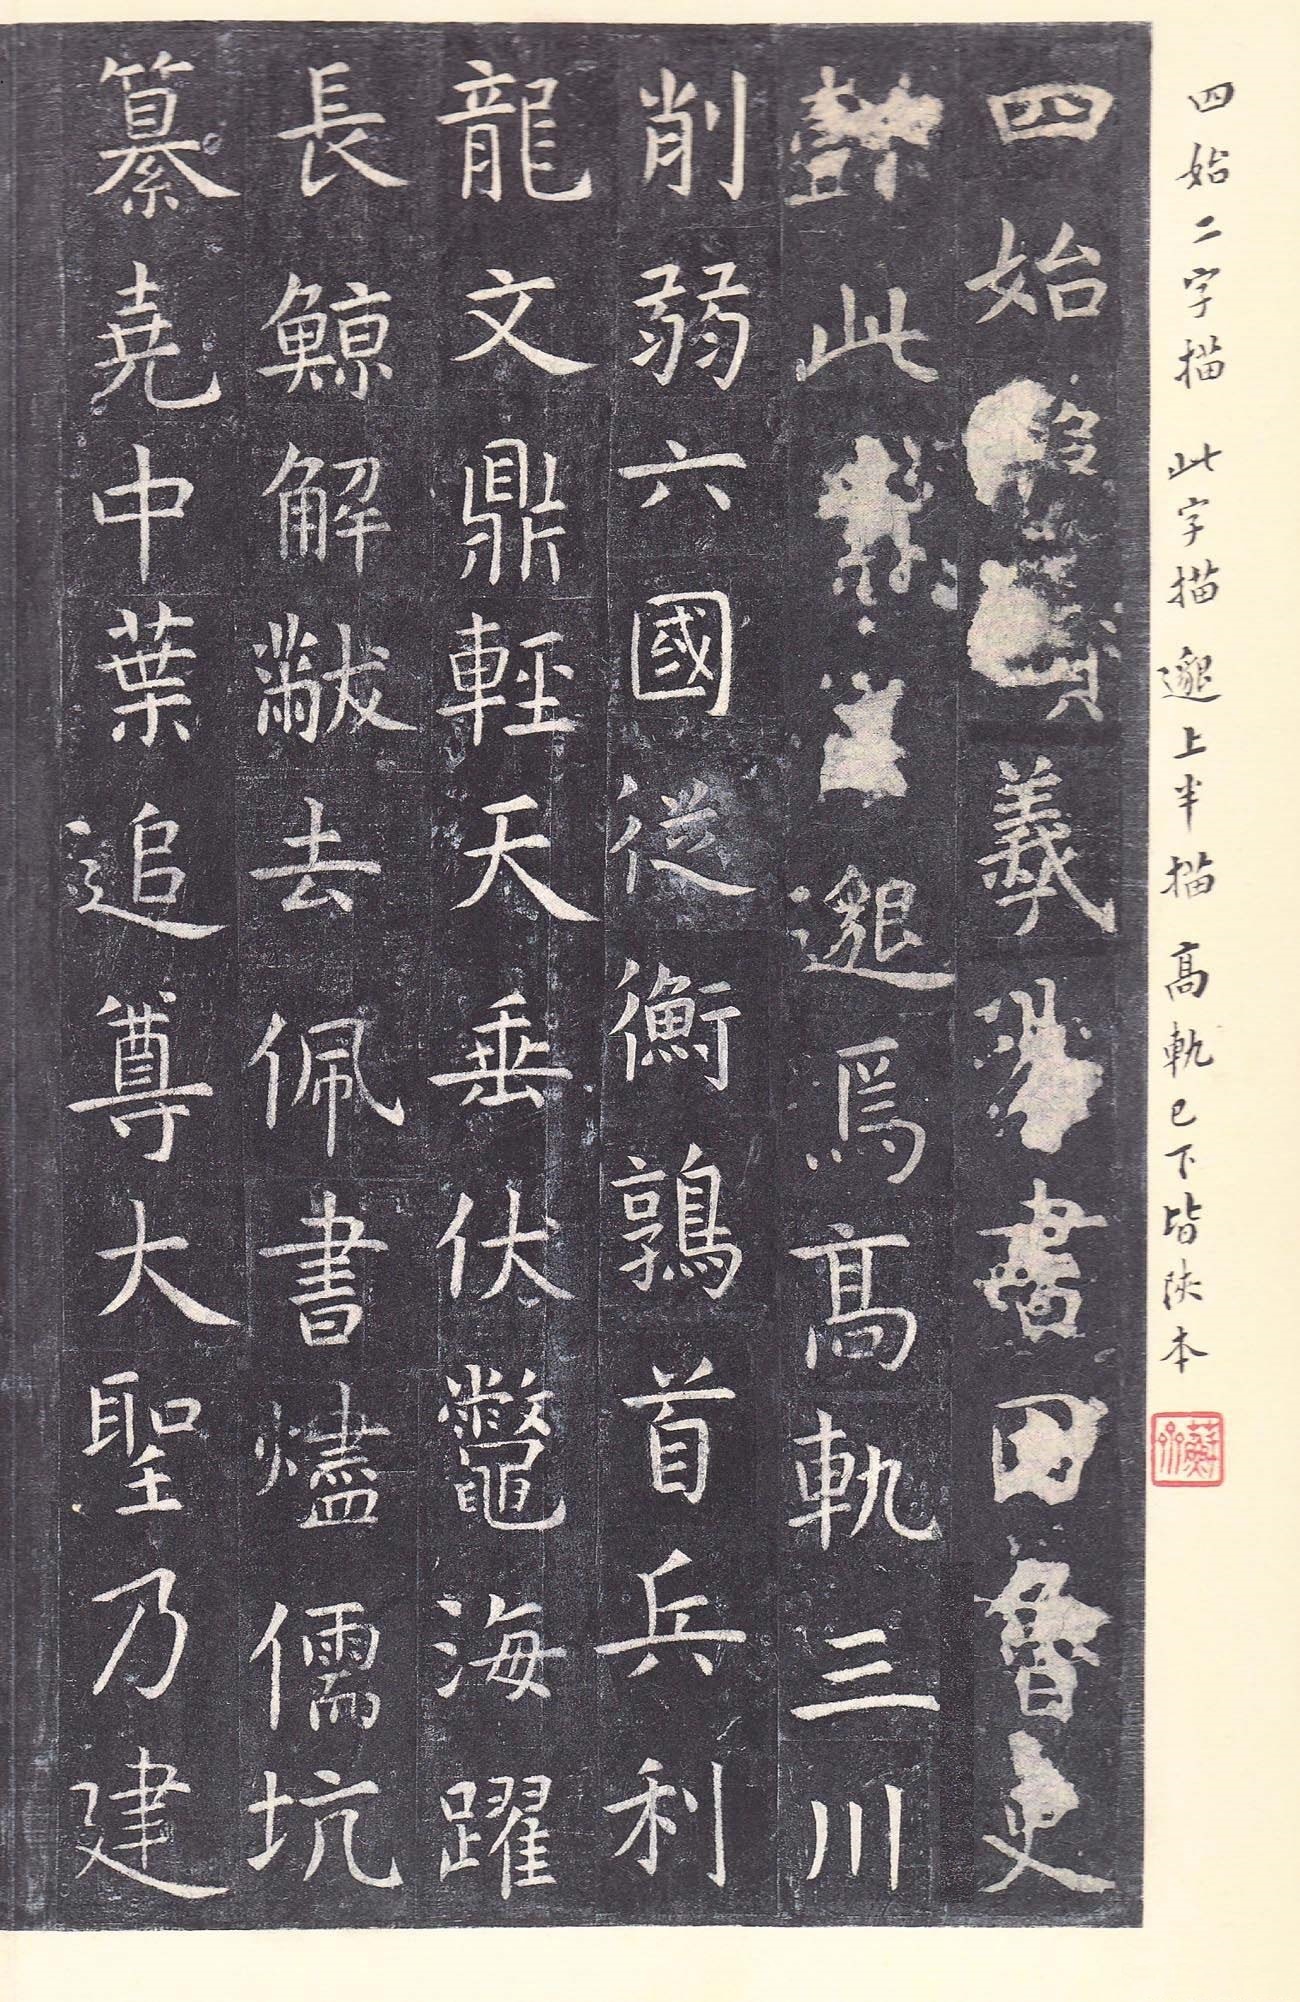 四始二字描 此字描 邈上半描 高軌已下皆陝本
四始
羲 書曰魯史
此 邈焉高軌三川
削弱六國從衡鶉首兵利
龍文鼎輕天垂伏鼈海躍
長鯨解黻去佩書燼儒坑
纂堯中葉追尊大聖乃建